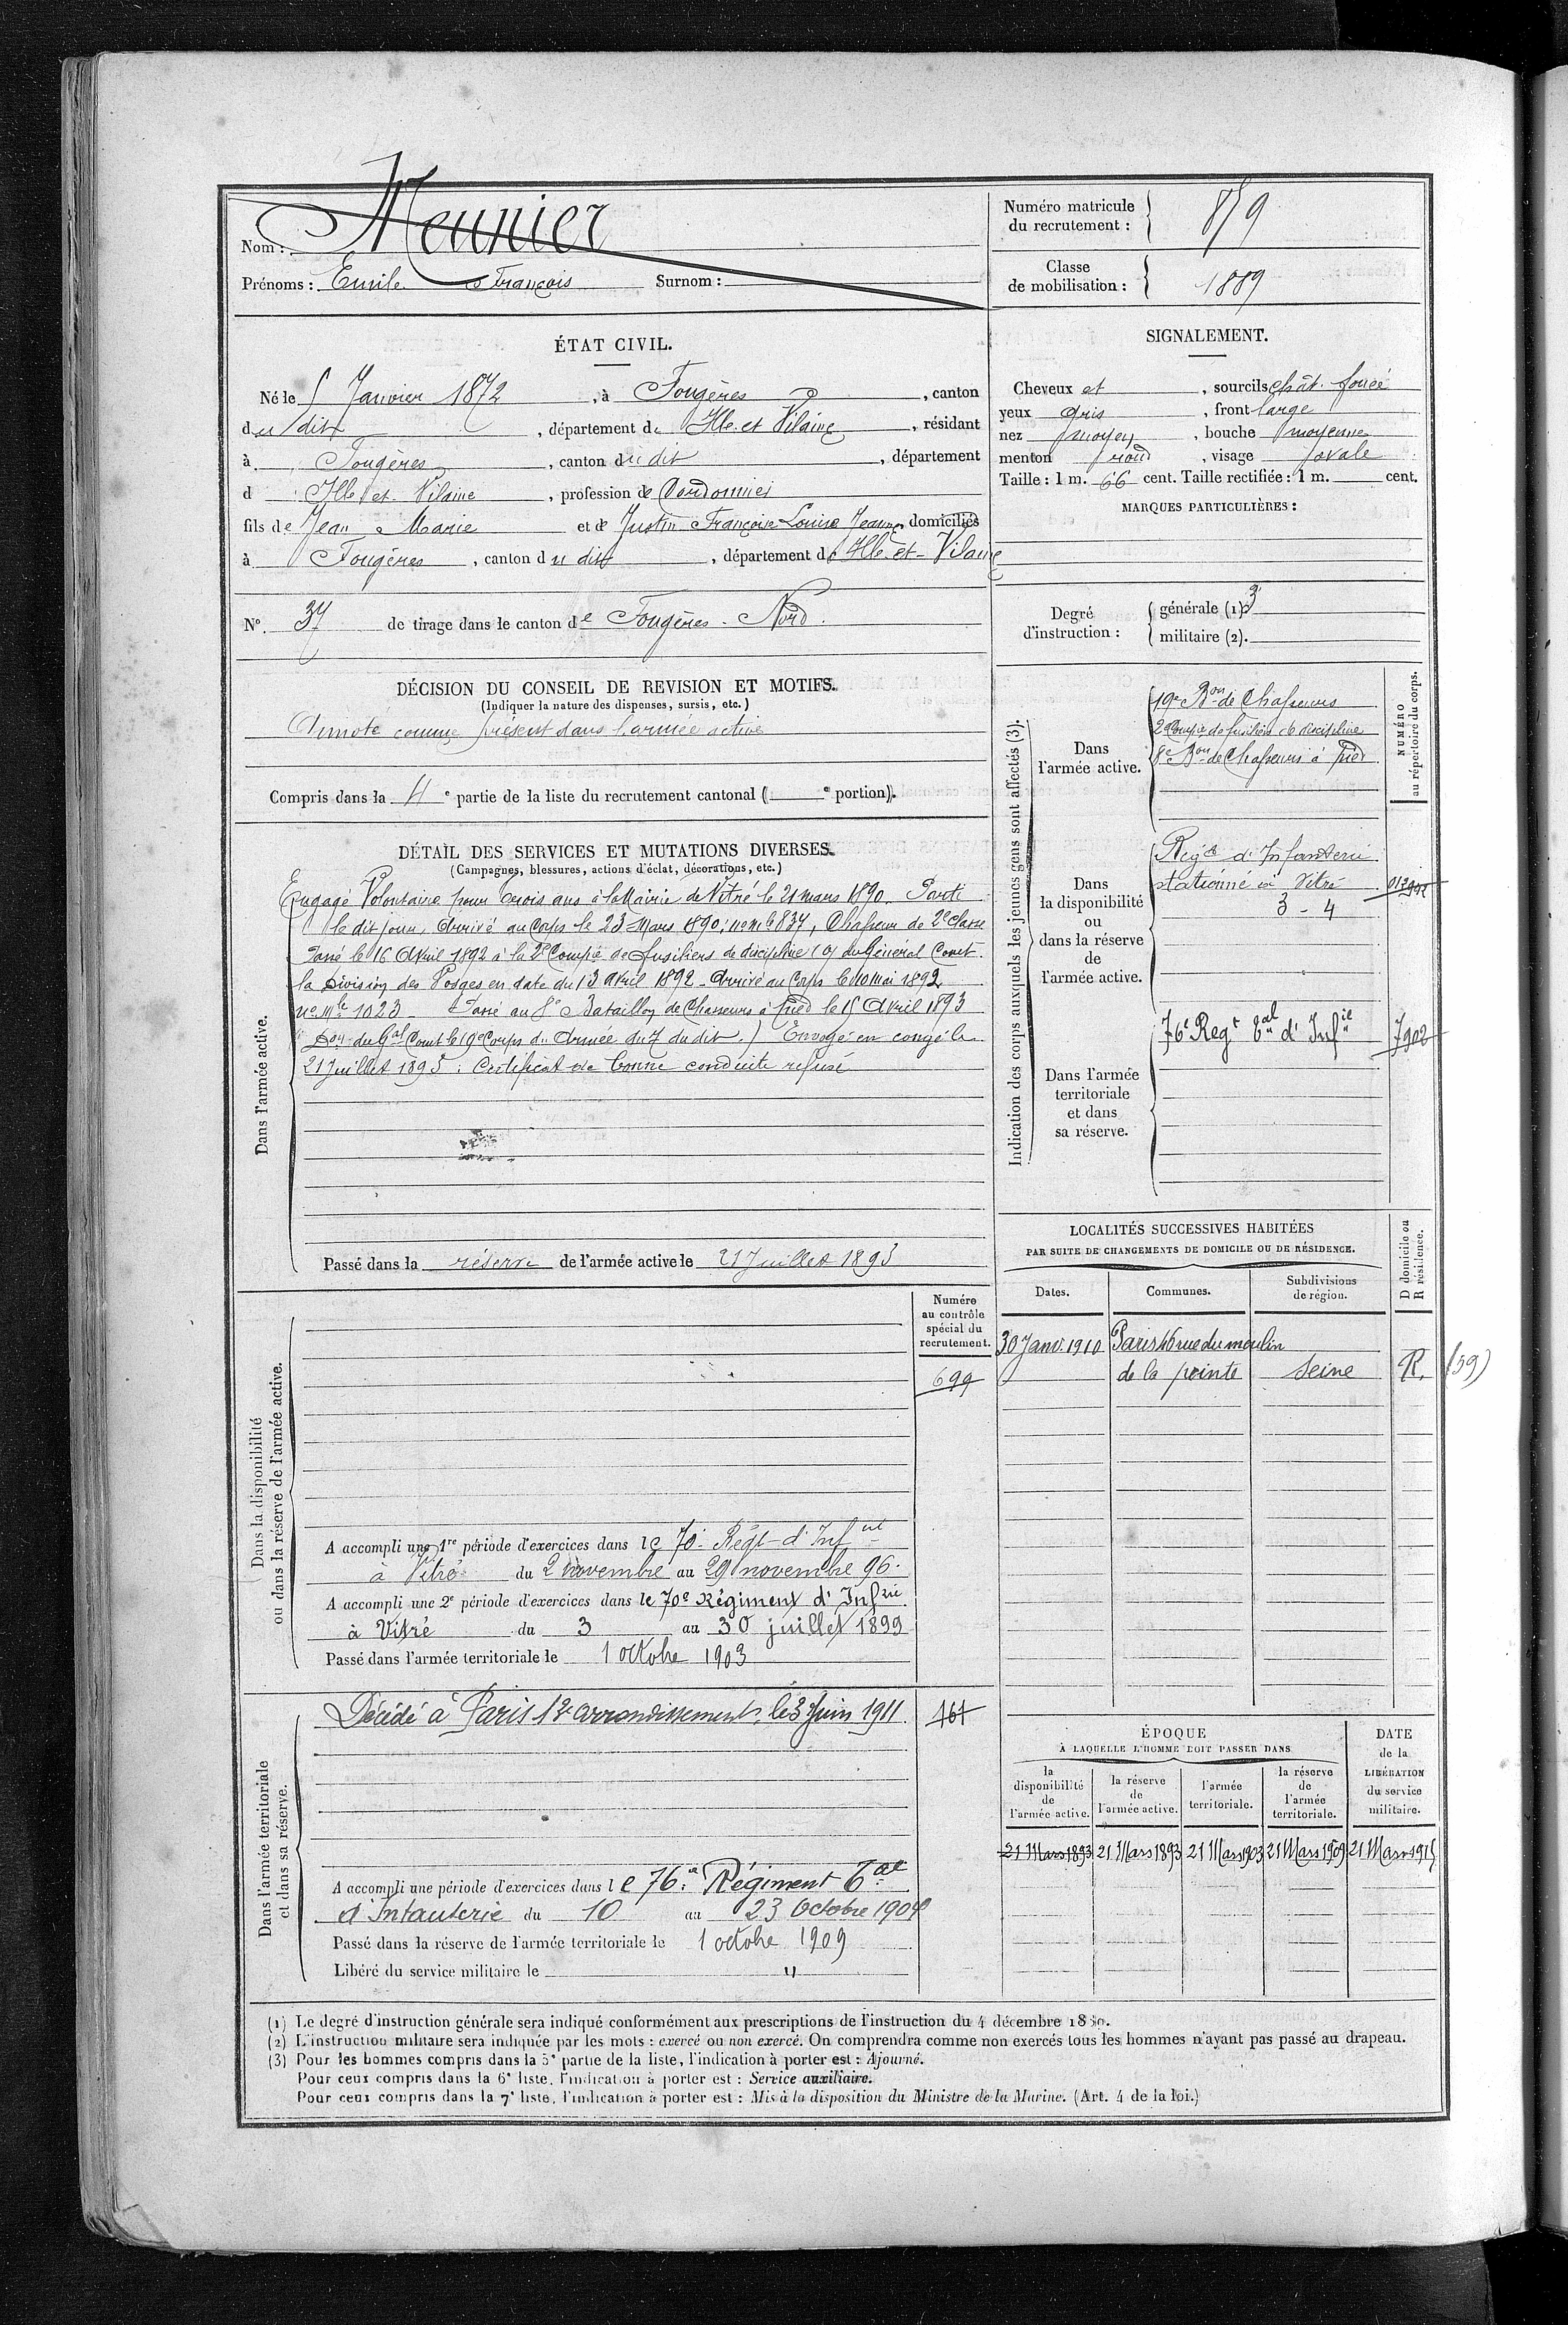 Nom : Meunier
Prénoms : Emile François Surnom :
Numéro matricule du recrutement : 859
Classe de mobilisation : 1889
ÉTAT CIVIL.
Né le 5 Janvier 1872, à Fougères, canton
du dit, département d'Ille et Vilaine, résidant
à Fougères, canton du dit, département
d'Ille et Vilaine, profession de Cordonnier
fils de Jean Marie et de Justin Françoise Louise Jeanne domiciliés
à Fougères, canton du dit, département de Ille-et-Vilaine
N°. 37 de tirage dans le canton de Fougères-Nord.
DÉCISION DU CONSEIL DE REVISION ET MOTIFS.
(Indiquer la nature des dispenses, sursis, etc.)
Annoté comme présent dans l'armée active
Compris dans la 4e partie de la liste du recrutement cantonal ( e portion).
SIGNALEMENT.
Cheveux et , sourcils chât. foncé
yeux gris , front large
nez moyen , bouche moyenne
menton rond , visage ovale
Taille : 1 m. 66 cent. Taille rectifiée : 1 m. cent.
MARQUES PARTICULIÈRES :
Degré d'instruction : générale (1). 3
militaire (2).
DÉTAIL DES SERVICES ET MUTATIONS DIVERSES.
(Campagnes, blessures, actions d'éclat, décorations, etc.)
Dans l'armée active.
Engagé Volontaire pour trois ans à la Mairie de Vitré le 21 mars 1890. Parti
le dit jour, Arrivé au Corps le 23 Mars 1890; n° mle 834, Chasseur de 2e classe
Passé le 16 Avril 1892 à la 2e Compie de fusiliers de discipline ( du Général Comt.
la Division des Vosges en date du 13 avril 1892 - Arrivé au Corps le 10 mai 1892
n° Mle 1023 - Passé au 8e Bataillon de Chasseurs à pied le 15 Avril 1893
Don du Gal Comt le 19e Corps d'Armée du 7 du dit.) Envoyé en congé le
21 Juillet 1893 : Certificat de bonne conduite refusé
Passé dans la réserve de l'armée active le 21 Juillet 1893
Indication des corps auxquels les jeunes gens sont affectés (3).
NUMÉRO au répertoire du corps.
Dans l'armée active.
19e Bon de Chasseurs
2e Compie de fusiliers de discipline
8e Bon de Chasseurs à pied
Dans la disponibilité ou dans la réserve de l'armée active.
Régt d'Infanterie
stationné à Vitré
3 - 4
Dans l'armée territoriale et dans sa réserve.
76e Regt tal d'Infie 7902
LOCALITÉS SUCCESSIVES HABITÉES
PAR SUITE DE CHANGEMENTS DE DOMICILE OU DE RÉSIDENCE.
Dates. Communes. Subdivisions de région. D domicile ou R résidence.
30 Janv. 1910 Paris 16 rue du moulin
de la pointe Seine R. (59)
Dans la disponibilité ou dans la réserve de l'armée active.
Numéro au contrôle spécial du recrutement.
699
A accompli une 1re période d'exercices dans le 70e Régt d'Infrie
à Vitré du 2 novembre au 29 novembre 96.
A accompli une 2e période d'exercices dans le 70e Régiment d'Infrie
à Vitré du 3 au 30 juillet 1899
Passé dans l'armée territoriale le 1 octobre 1903
Dans l'armée territoriale et dans sa réserve.
Décédé à Paris 12e arrondissement, le 3 Juin 1911. 161
A accompli une période d'exercices dans le 76e Régiment Tal
d'Infanterie du 10 au 23 Octobre 1904
Passé dans la réserve de l'armée territoriale le 1 octobre 1909
Libéré du service militaire le "
ÉPOQUE
À LAQUELLE L'HOMME DOIT PASSER DANS
la disponibilité de l'armée active. la réserve de l'armée active. l'armée territoriale. la réserve de l'armée territoriale.
DATE de la LIBÉRATION du service militaire.
21 Mars 1893 21 Mars 1893 21 Mars 1903 21 Mars 1909 21 Mars 1915
(1) Le degré d'instruction générale sera indiqué conformément aux prescriptions de l'instruction du 4 décembre
(2) L'instruction militaire sera indiquée par les mots : exercé ou non exercé. On comprendra comme non exercés tous les hommes n'ayant pas passé au drapeau.
(3) Pour les hommes compris dans la 5e partie de la liste, l'indication à porter est : Ajourné.
Pour ceux compris dans la 6e liste, l'indication à porter est : Service auxiliaire.
Pour ceux compris dans la 7e liste, l'indication à porter est : Mis à la disposition du Ministre de la Marine. (Art. 4 de la loi.)